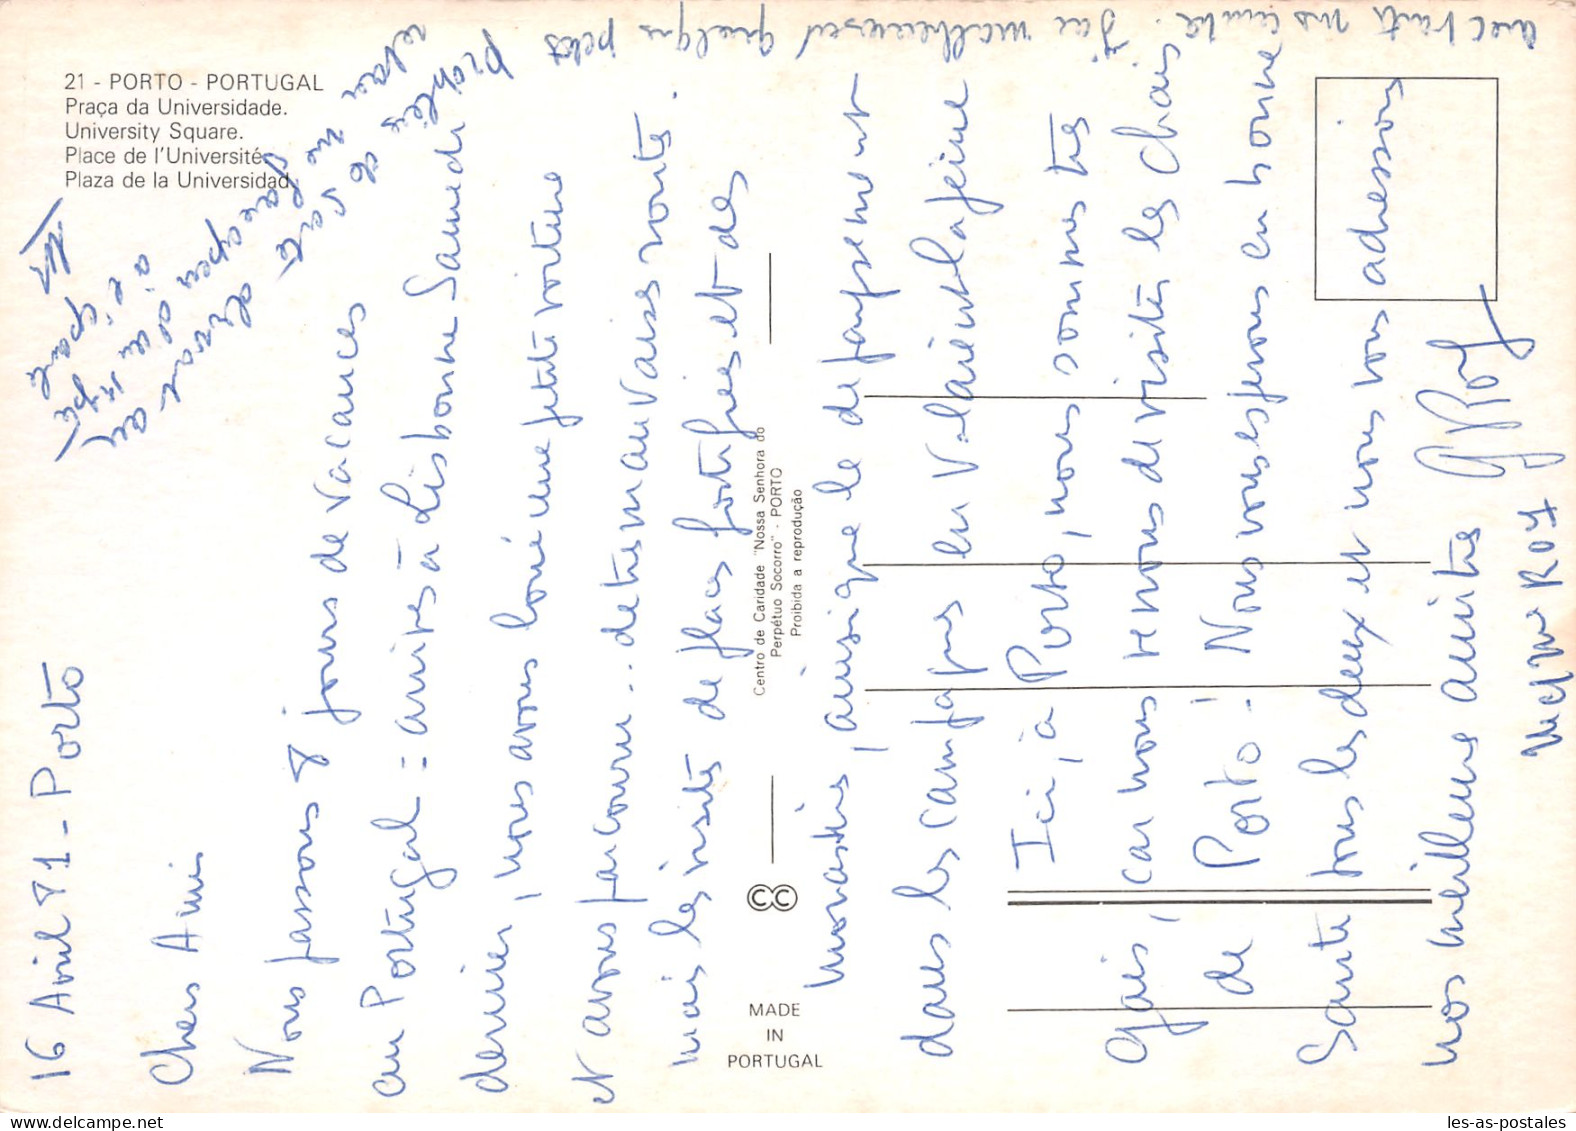 21 - PORTO - PORTUGAL
Praça da Universidade.
University Square.
Place de l'Université.
Plaza de la Universidad.
Centro de Caridade "Nossa Senhora do
Perpétuo Socorro" - PORTO
Proibida a reprodução
MADE
IN
PORTUGAL
16 Avril 81 - Porto
Chers Amis
Nous passons 8 jours de vacances
au Portugal : arrivés à Lisbonne Samedi
dernier, nous avons loué une petite voiture
et avons parcouru.. de très mauvaises routes.
mais les visites de places fortifiées et des
monastères, ainsi que le dépaysement
dans les campagnes en valaient la peine
Ici, à Porto, nous sommes très
gais, car nous venons de visiter les Chais
de Porto ! Nous vous espérons en bonne
Santé tous les deux et nous vous adressons
nos meilleures amitiés
G Roy
Mme ROY
J'ai malheureusement quelques petits
problèmes de santé
les-as-postales